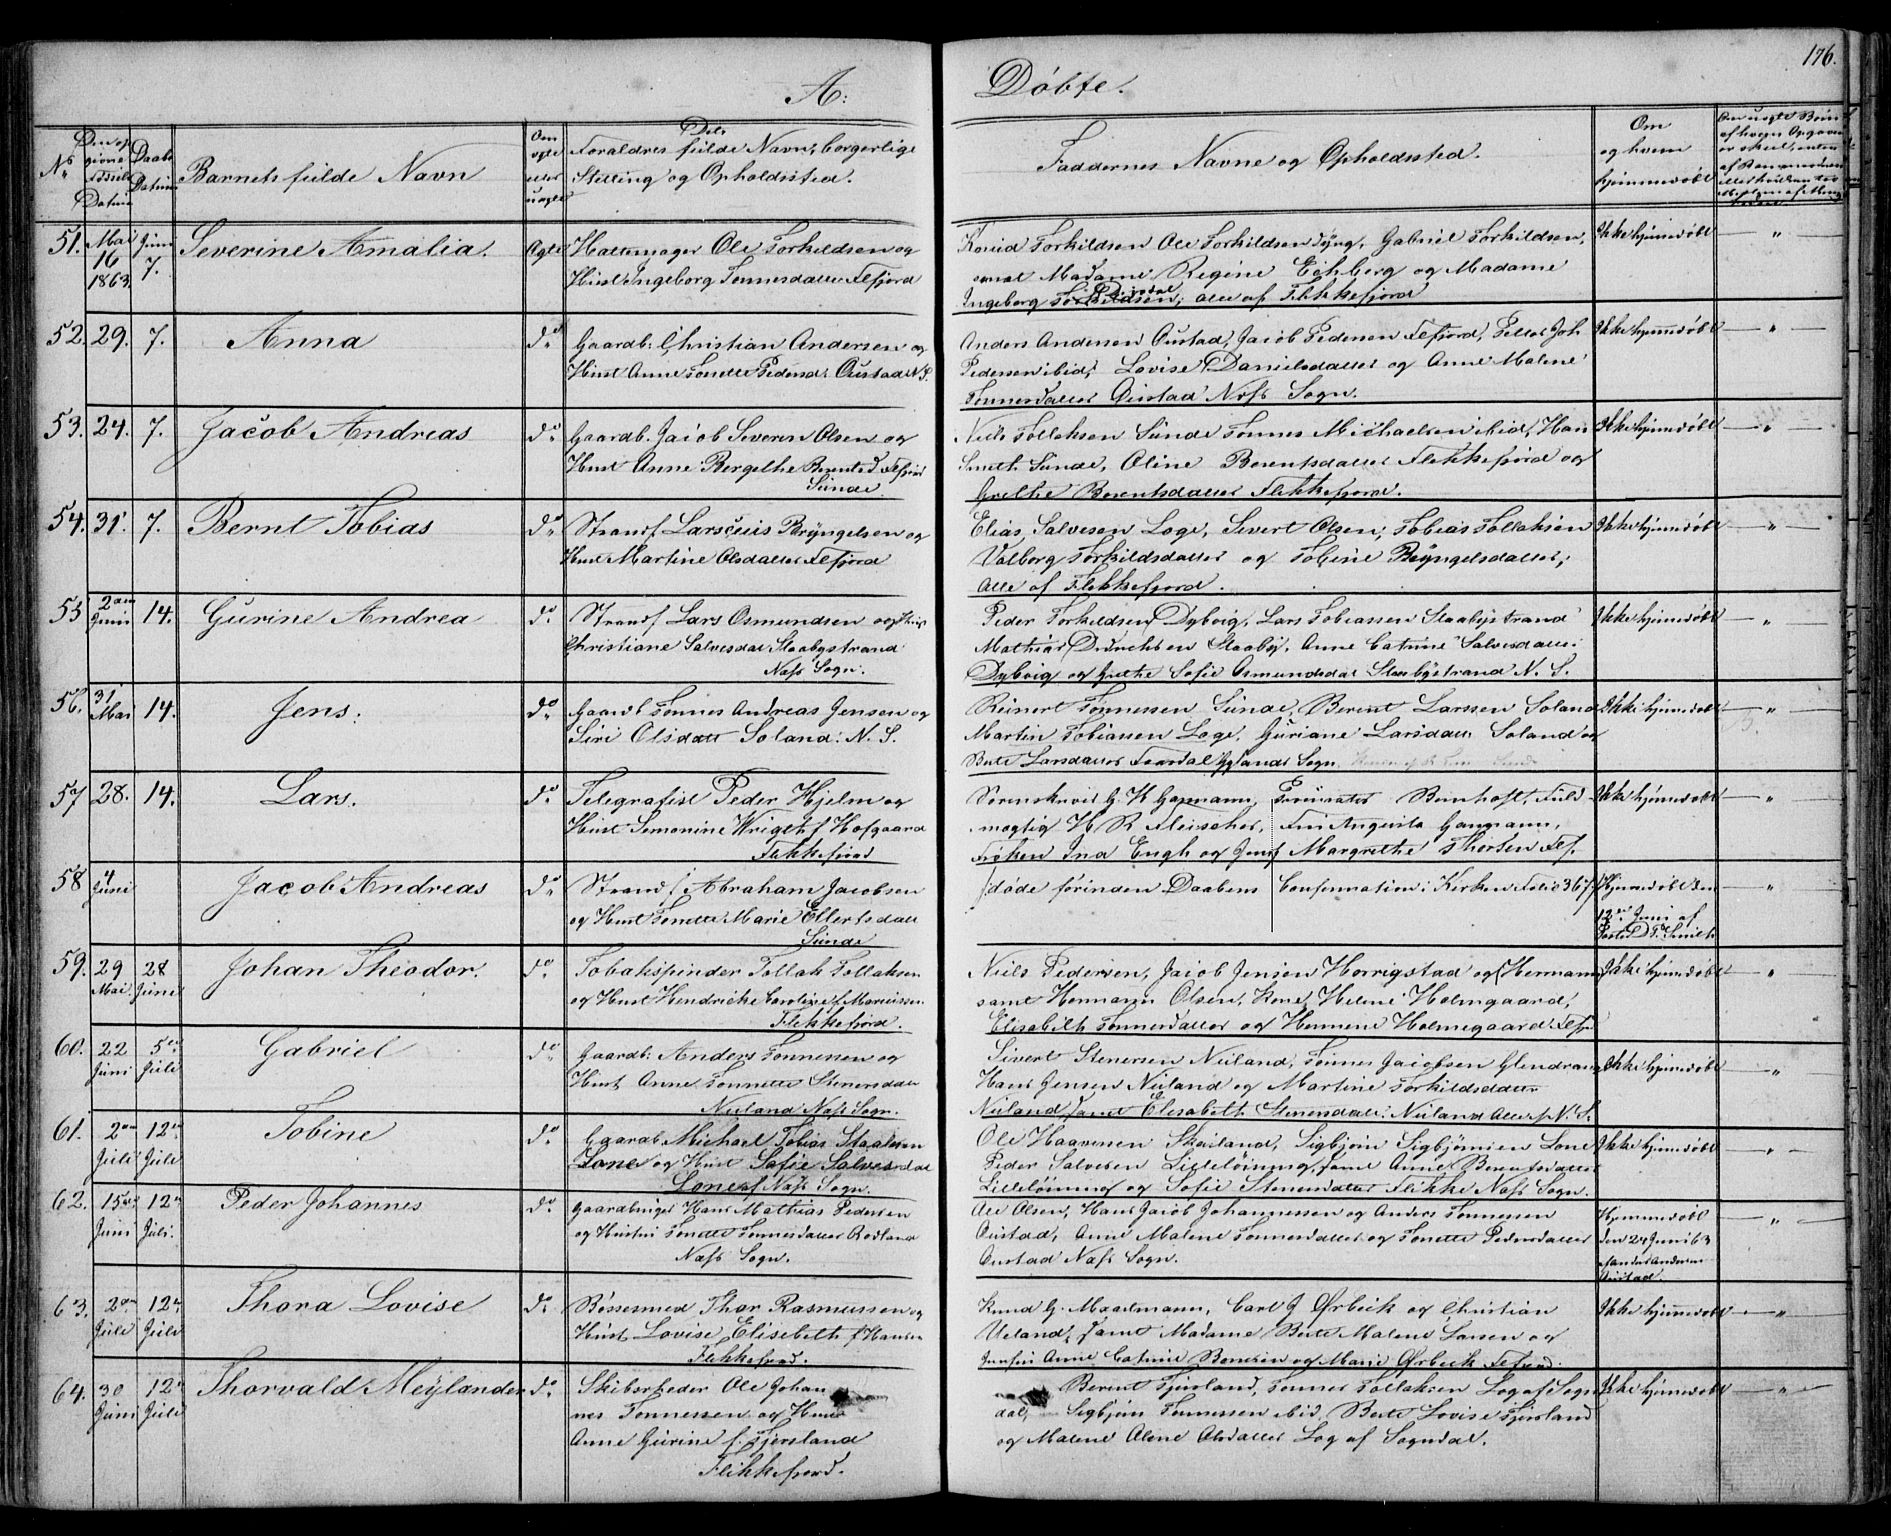 176.
A: Døbte.
No.
Den op
givne
Fødsels
Datum
Daabs
Datum
Barnets fulde Navn
Om
ægte
eller
uægte
Dets
Forældres fulde Navn, borgerlige
Stilling og Opholdssted.
Faddernes Navne og Opholdssted.
Om
og hvem
hjemmedøbt
51. Mai 16 1863 Juni 7. Severine Amalia. Ægte
Hattemager Ole Torkildsen og
Hust Ingeborg Tønnesdatter Flefjord
Torkildsen Ole Torkildsen Gabriel Torkildsen,
samt Madame Regine Eghberg og Madame
Ingeborg Torkildsen; alle af Flekkefjord
Ikke hjemmedøbt "
52. 29. 7. Anna do
Gaardb: Christian Andersen og
Hust Anne Tonette Pedersd: Oustad N. S.
Anders Andersen Oustad, Jacob Pedersen Flefjord, Peder Joh
Pedersen ibid, Lovise Danielsdatter og Anne Malene
Tønnesdatter Oustad Næss Sogn.
Ikke hjemmedøbt "
53. 24. 7. Jacob Andreas do
Gaardb. Jacob Severin Olsen og
Hust Anne Bergethe Berentsd Flefjord
Sünde
Niels Tollaksen Sünde Tønnes Michaelsen ibid, Hans
Smith Sünde, Oline Berentsdatter Flekkefjord og
Grethe Berentsdatter Flekkefjord.
Ikke hjemmedøbt "
54. 31. 7. Bernt Tobias do
Strandf Larscüis Bryngelsen og
Hust Martine Olsdatter Flefjord
Elias Salvesen Loge, Sivert Olsen, Tobias Tollaksen
Valborg Torkildsdatter og Tobine Bryngelsdatter,
Alle af Flekkefjord.
Ikke hjemmedøbt "
55 2den Juni 14. Gurine Andrea do
Strandf Lars Osmundsen og Hust
Christiane Salvesdat Staabystrand
Næss Sogn.
Peder Torkildsen Dybvig, Lars Tobiassen Staabystrand
Mathias Didrichsen Staaby, Anne Catrine Salvesdatter
Dybvig og Grethe Sofie Osmundsdat Staabystrand N. S.
Ikke hjemmedøbt "
56. 31 Mai 14. Jens: do
Gaardb Tønnes Andreas Jensen og
Siri Olsdatt Soland: N. S.
Reinert Tønnessen Sünde, Berent Larssen Soland
Martin Tobiassen Loge, Guriane Larsdatt Soland og
Berte Larsdatter Hyllands Sogn.
Ikke hjemmedøbt "
57 28. 14. Lars. do
Telegrafist Peder Hjelm og
Hust Semonine Wrigth f Hofgaard
Flekkefjord
Sorenskriver G. H. Garmann, Bernhoft, Fuld
mægtig H R Fleischer, Frü Augusta Garmann,
Frøken Ina Engh og Jomf Margrethe Thorsen Flef.
Ikke hjemmedøbt "
58 4 Juni Jacob Andreas do
Strandf Abraham Jacobsen
og Hust Tonette Marie Ellertsdatt
Sünde
/døde førinden Daabens Confirmation i Kirken Folio 367/
Hjemmedøbt den
12te Juni af
Smith
"
59. 29 Mai 28 Juni Johan Theodor. do
Tobakspinder Tollak Tollaksen
og Hust Hendrikke Caroline f Marcussen
Flekkefjord.
Niels Pedersen, Jacob Jensen Horrigstad og Hermann
samt Hermann Olsen, Kone Helene Holmgaard,
Elisabeth Tønnesdatter og Hermene Holmegaard Flefj.
Ikke hjemmedøbt "
60. 22 Juni 5te Juli Gabriel do
Gaardb: Anders Tønnessen og
Hust Anne Tonnette Stenersdatt
Nuland Næss Sogn.
Sivert Stenersen Nuland, Tønnes Jacobsen Glendrang
Hans Jensen Nuland og Martine Torkildsdatter
Nuland samt Elisabeth Stenersdatt: Nuland Alle af N. S.
Ikke hjemmedøbt "
61. 2den Juli 12te Juli Tobine do
Gaardb. Michael Tobias Staalesen
Lone og Hust Sofie Salvesdat
Lone af Næss Sogn.
Ole Haavessen Skailand, Sigbjørn Sigbjørnsen Lone
Peder Salvesen Lilleløining, samt Anne Berentsdatter
Lilleløining og Sofie Stenersdatter Flikke Næss Sogn.
Ikke hjemmedøbt "
62. 15de Juni 12te Juli. Peder Johannes do
Gaardbruger Hans Mathias Pedersen
og Hustru Tonette Tønnesdatter Rødland
Næss Sogn.
Ole Olsen, Hans Jacob Johannessen og Anders Tønnessen
Oustad, Anne Malene Tønnesdatter og Tonette Pedersdatter
Oustad Næss Sogn.
Hjemmedøbt
den 24 Juni 63
af Anders Andersen
Oustad.
"
63. 2den Juli 12te Juli Thora Lovise do
Bøssesmed Thor Rasmussen og
Hust Lovise Elisebeth f Hansen
Flekkefjord.
Knud G. Maselmann, Carl J Ørbeck og Christian
Ueland, samt Madame Berte Malene Larsen og
Jomfru Anne Catrine Bendsen og Marie Ørbeck Flefjord.
Ikke hjemmedøbt "
64. 30 Juni 12te Juli Thorvald Meylander do
Skibsreder Ole Johan
nes Tønnessen og Hust
Anne Gurine f. Fjersland
Flekkefjord.
Berent Fjersland, Tønnes Tollaksen Log af Sogn
dal, Sigbjørn Tønnessen ibid, Berte Lovise Fjersland
og Malene Oline Olsdatter Log af Sogndal.
Ikke hjemmedøbt "